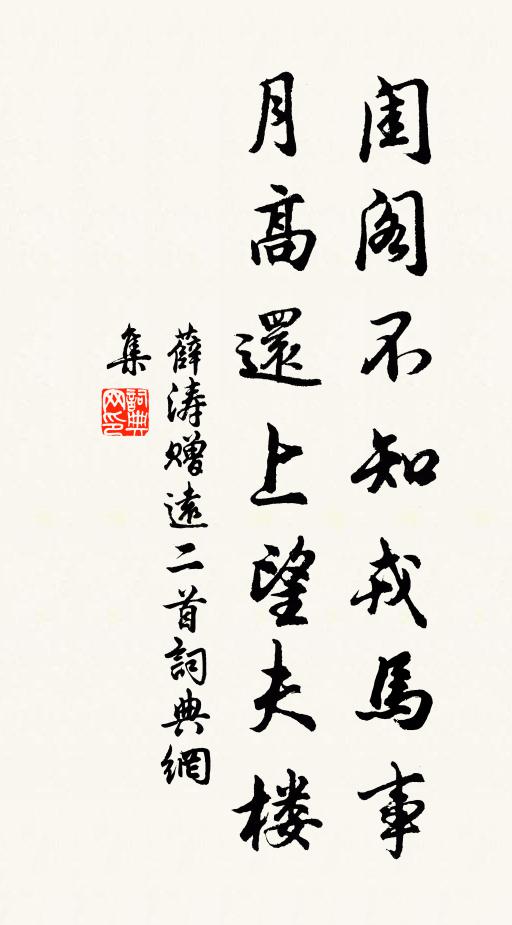 閨阁不知戎馬事
月高還上望夫楼
薛涛赠遠二首詞典網
集
詞典
网印